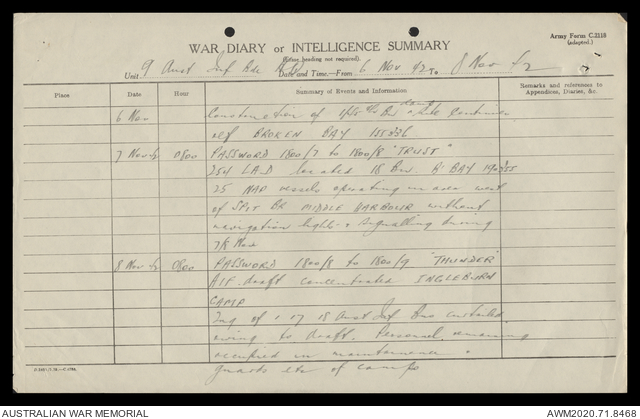 Army Form C.2118
(adapted.)
WAR DIARY or INTELLIGENCE SUMMARY
(Erase heading not required).
Unit 9 Aust Inf Bde
Date and Time.—From 6 Nov 42 To 8 Nov 42
Place Date Hour Summary of Events and Information Remarks and references to Appendices, Diaries, &c.
6 Nov Construction of continues
ref BROKEN BAY 155336
7 Nov 42 0800 PASSWORD 1800/7 to 1800/8 "TRUST"
254 LAD located 18 Bn. 'A' BAY
25 NAP vessels operating in area west
of SPIT BR MIDDLE HARBOUR without
navigation lights & signalling during
7/8 Nov
8 Nov 42 0800 PASSWORD 1800/8 to 1800/9 "THUNDER"
AIF draft concentrated INGLEBURN
CAMP
Tng of 1 & 18 Aust Inf Bns curtailed
owing to draft. Personnel remaining
occupied in maintenance &
guards etc of camps
AUSTRALIAN WAR MEMORIAL
AWM2020.71.8468